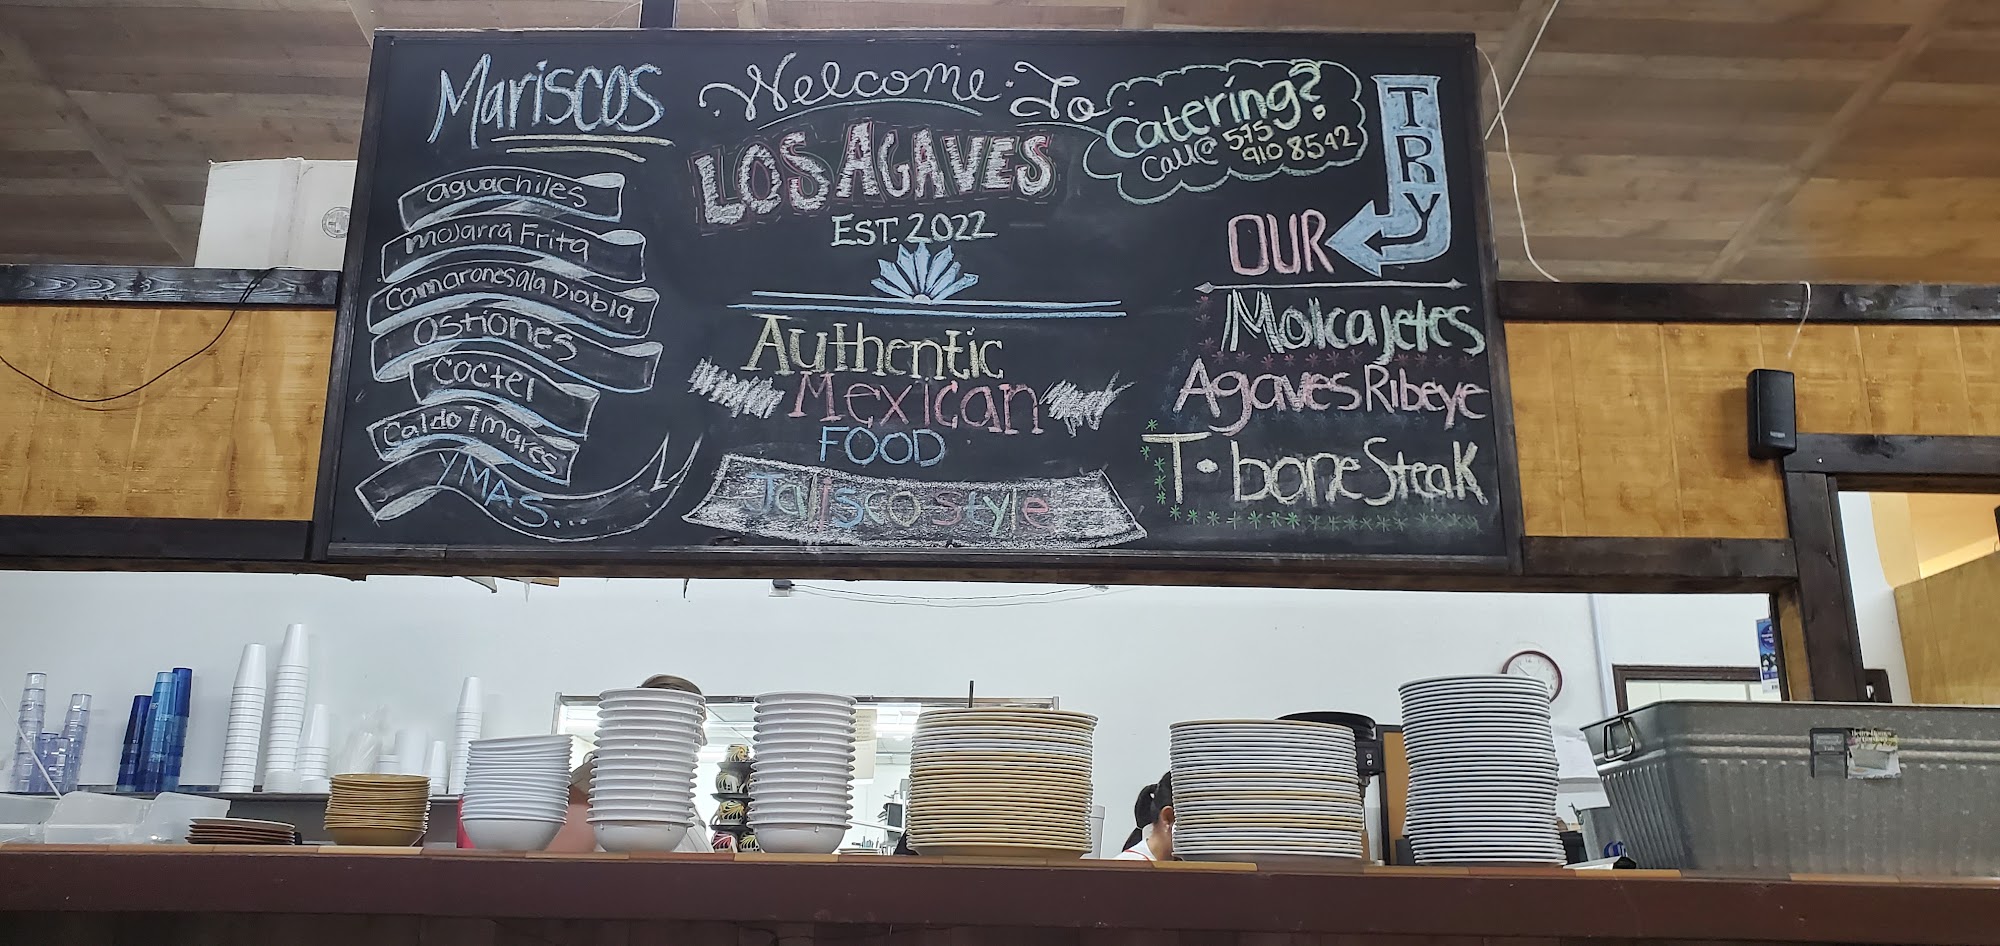 Mariscos
aguachiles
Mojarra Frita
Camarones a la Diabla
Ostiones
Coctel
Caldo 7 mares
Y MAS...
Welcome To
LOS AGAVES
EST. 2022
Authentic
Mexican
FOOD
Jalisco style
Catering?
Call @ 575
910 8542
TRY
OUR
Molcajetes
Agaves Ribeye
T-bone Steak